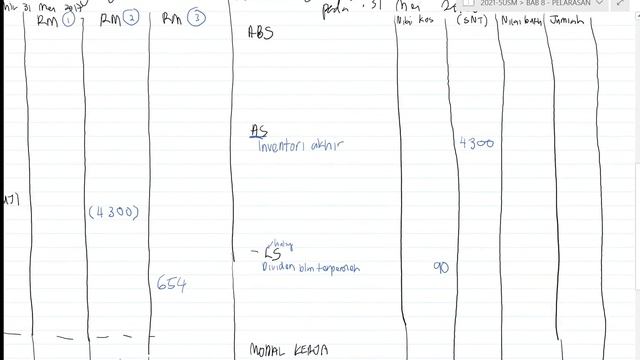 31 mac
RM 1
RM 2
RM 3
pada 31 mac
2021-5USM > BAB 8 - PELARASAN
Nilai kos
(SNT)
Nilai buku
Jumlah
ABS
AS
Inventori akhir
4300
(4300)
- LS
Dividen blm terperoleh
90
654
MODAL KERJA